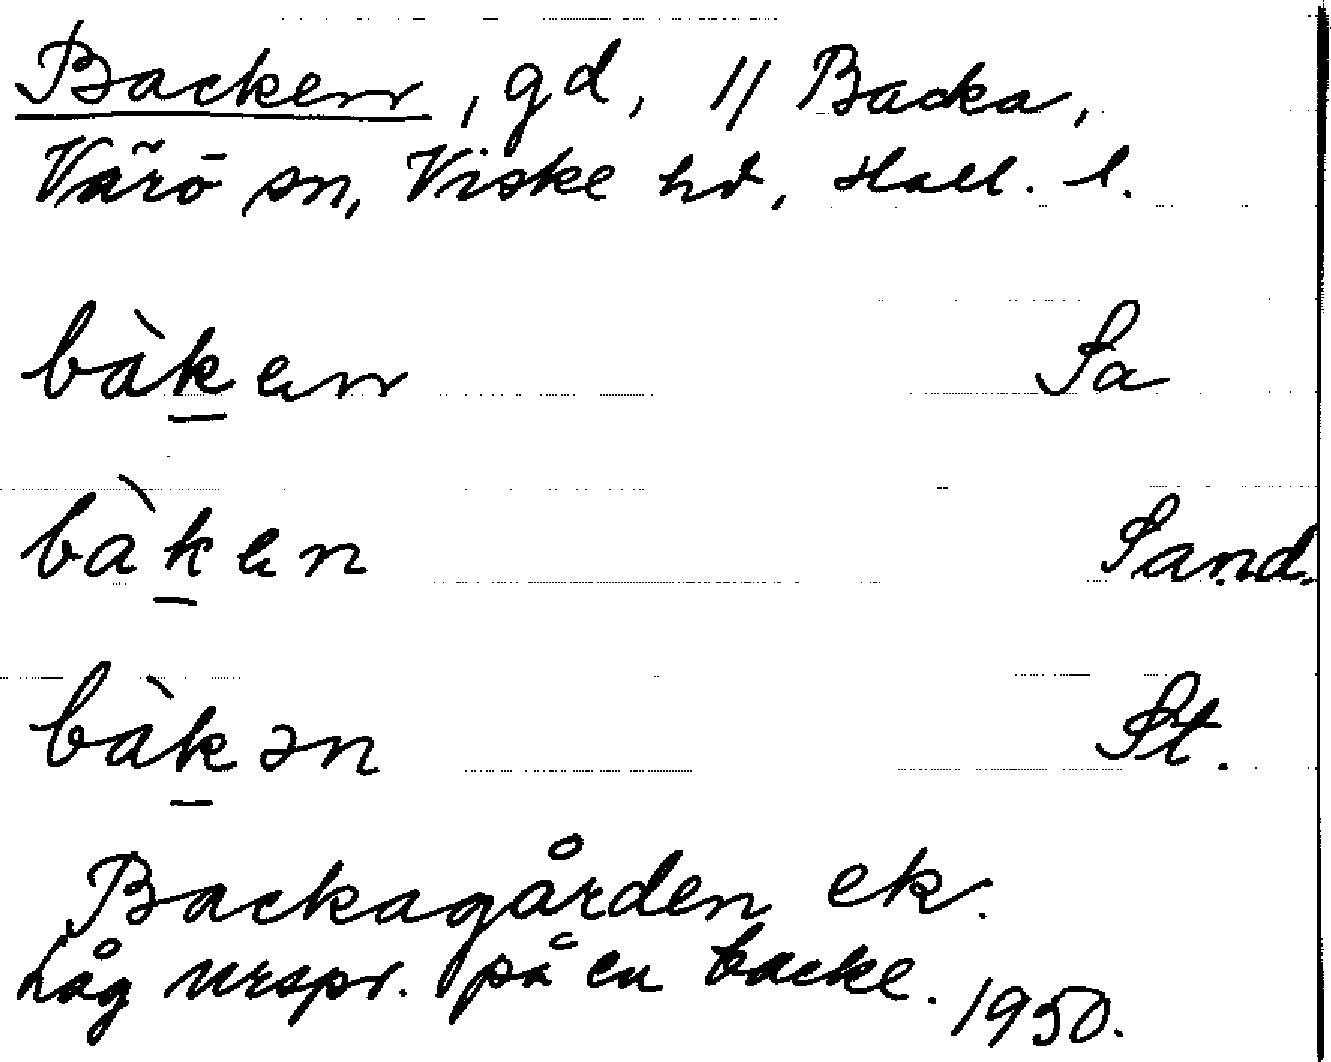 Backen, gd, 11 Backa,
Värö sn, Viske hd, Hall. l.
bàk̲en Sa
bàk̲en Sand.
bàk̲ən St.
Backagården ek.
Låg urspr. på en backe. 1950.